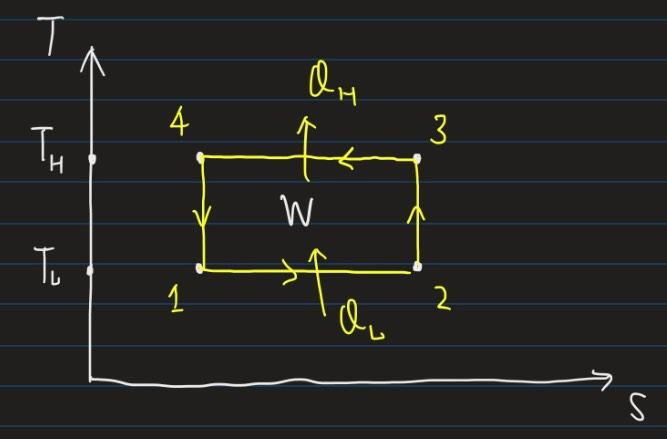 T
Q_H
4
3
T_H
W
T_L
1
2
Q_L
S